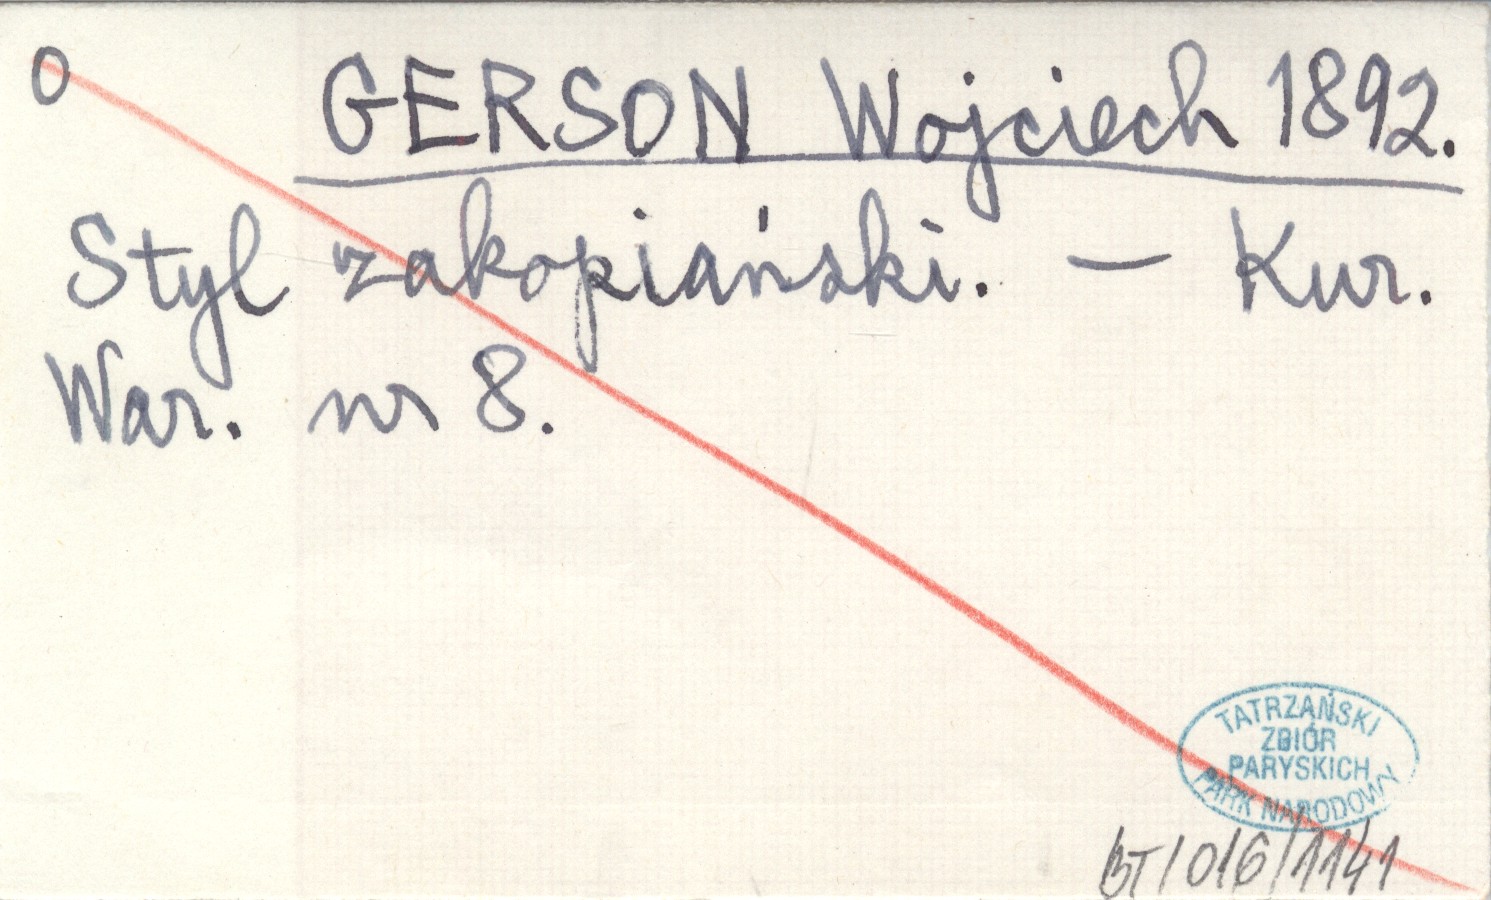 O GERSON Wojciech 1892.
Styl zakopiański. — Kur.
War. nr 8.
TATRZAŃSKI
ZBIÓR
PARYSKICH
PARK NARODOWY
BT/016/1141